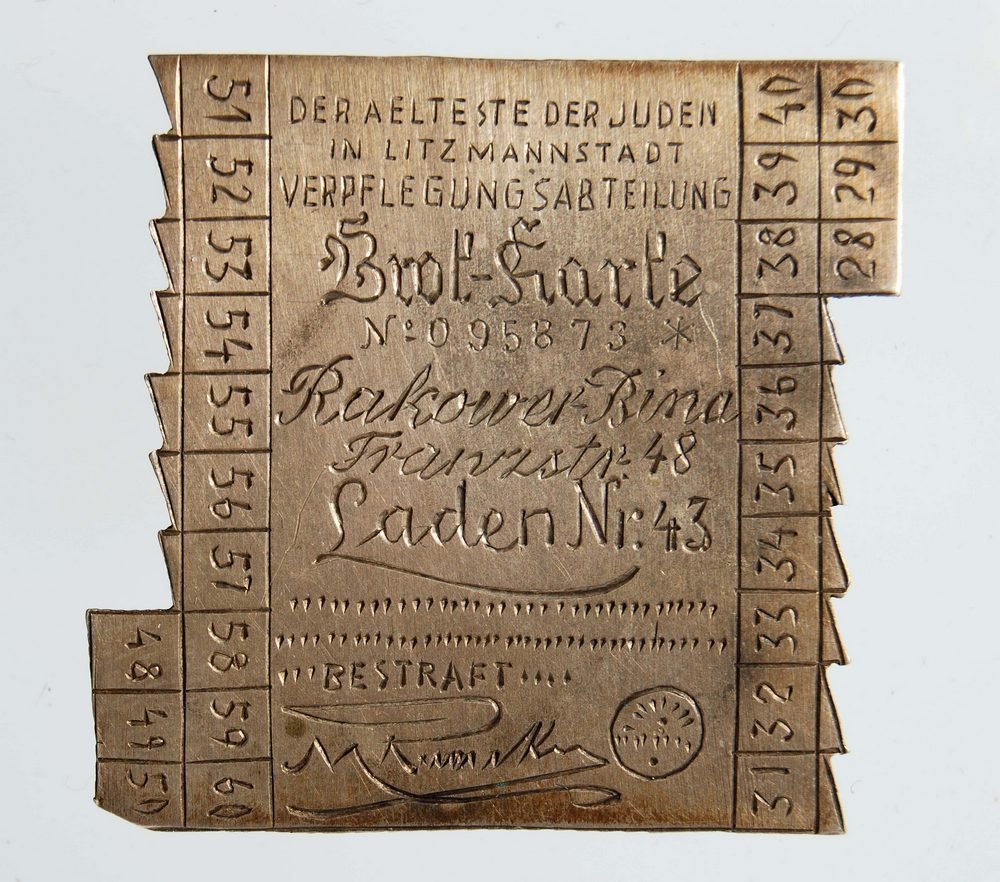 DER AELTESTE DER JUDEN
IN LITZMANNSTADT
VERPFLEGUNGSABTEILUNG
Brot-Karte
Nº 095873 *
Rakower Bina
Franzstr. 48
Laden Nr. 43
BESTRAFT
51
52
53
54
55
56
57
58
59
60
48
49
50
40
39
38
37
36
35
34
33
32
31
30
29
28